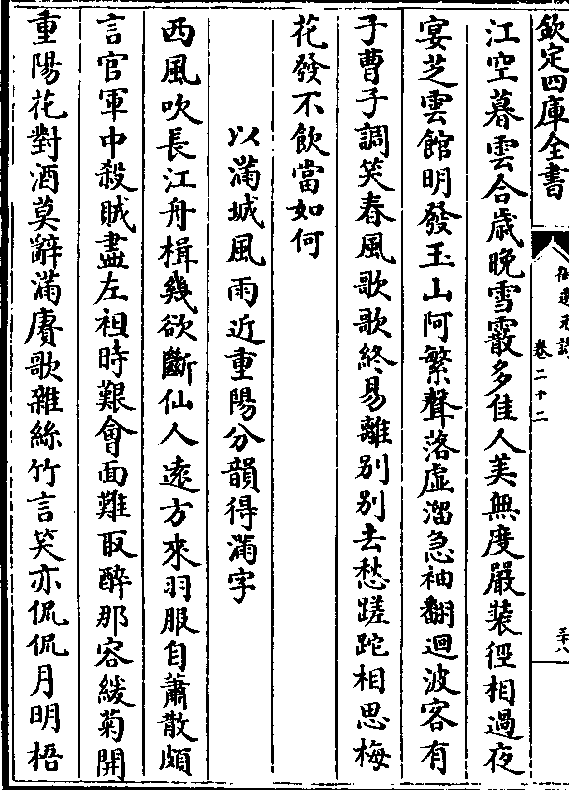 欽定四庫全書
卷二十二
江空暮雲合歳晚雪霰多佳人美無度嚴装徑相過夜
宴芝雲館明發玉山阿繁聲落虚溜急袖翻迴波客有
子曹子調笑春風歌歌終易離别别去愁蹉跎相思梅
花發不飲當如何
以滿城風雨近重陽分韻得滿字
西風吹長江舟楫幾欲斷仙人逺方來羽服自蕭散頗
言官軍中殺賊盡左袒時艱會面難取醉那容緩菊開
重陽花對酒莫辭滿賡歌雜絲竹言笑亦侃侃月明梧